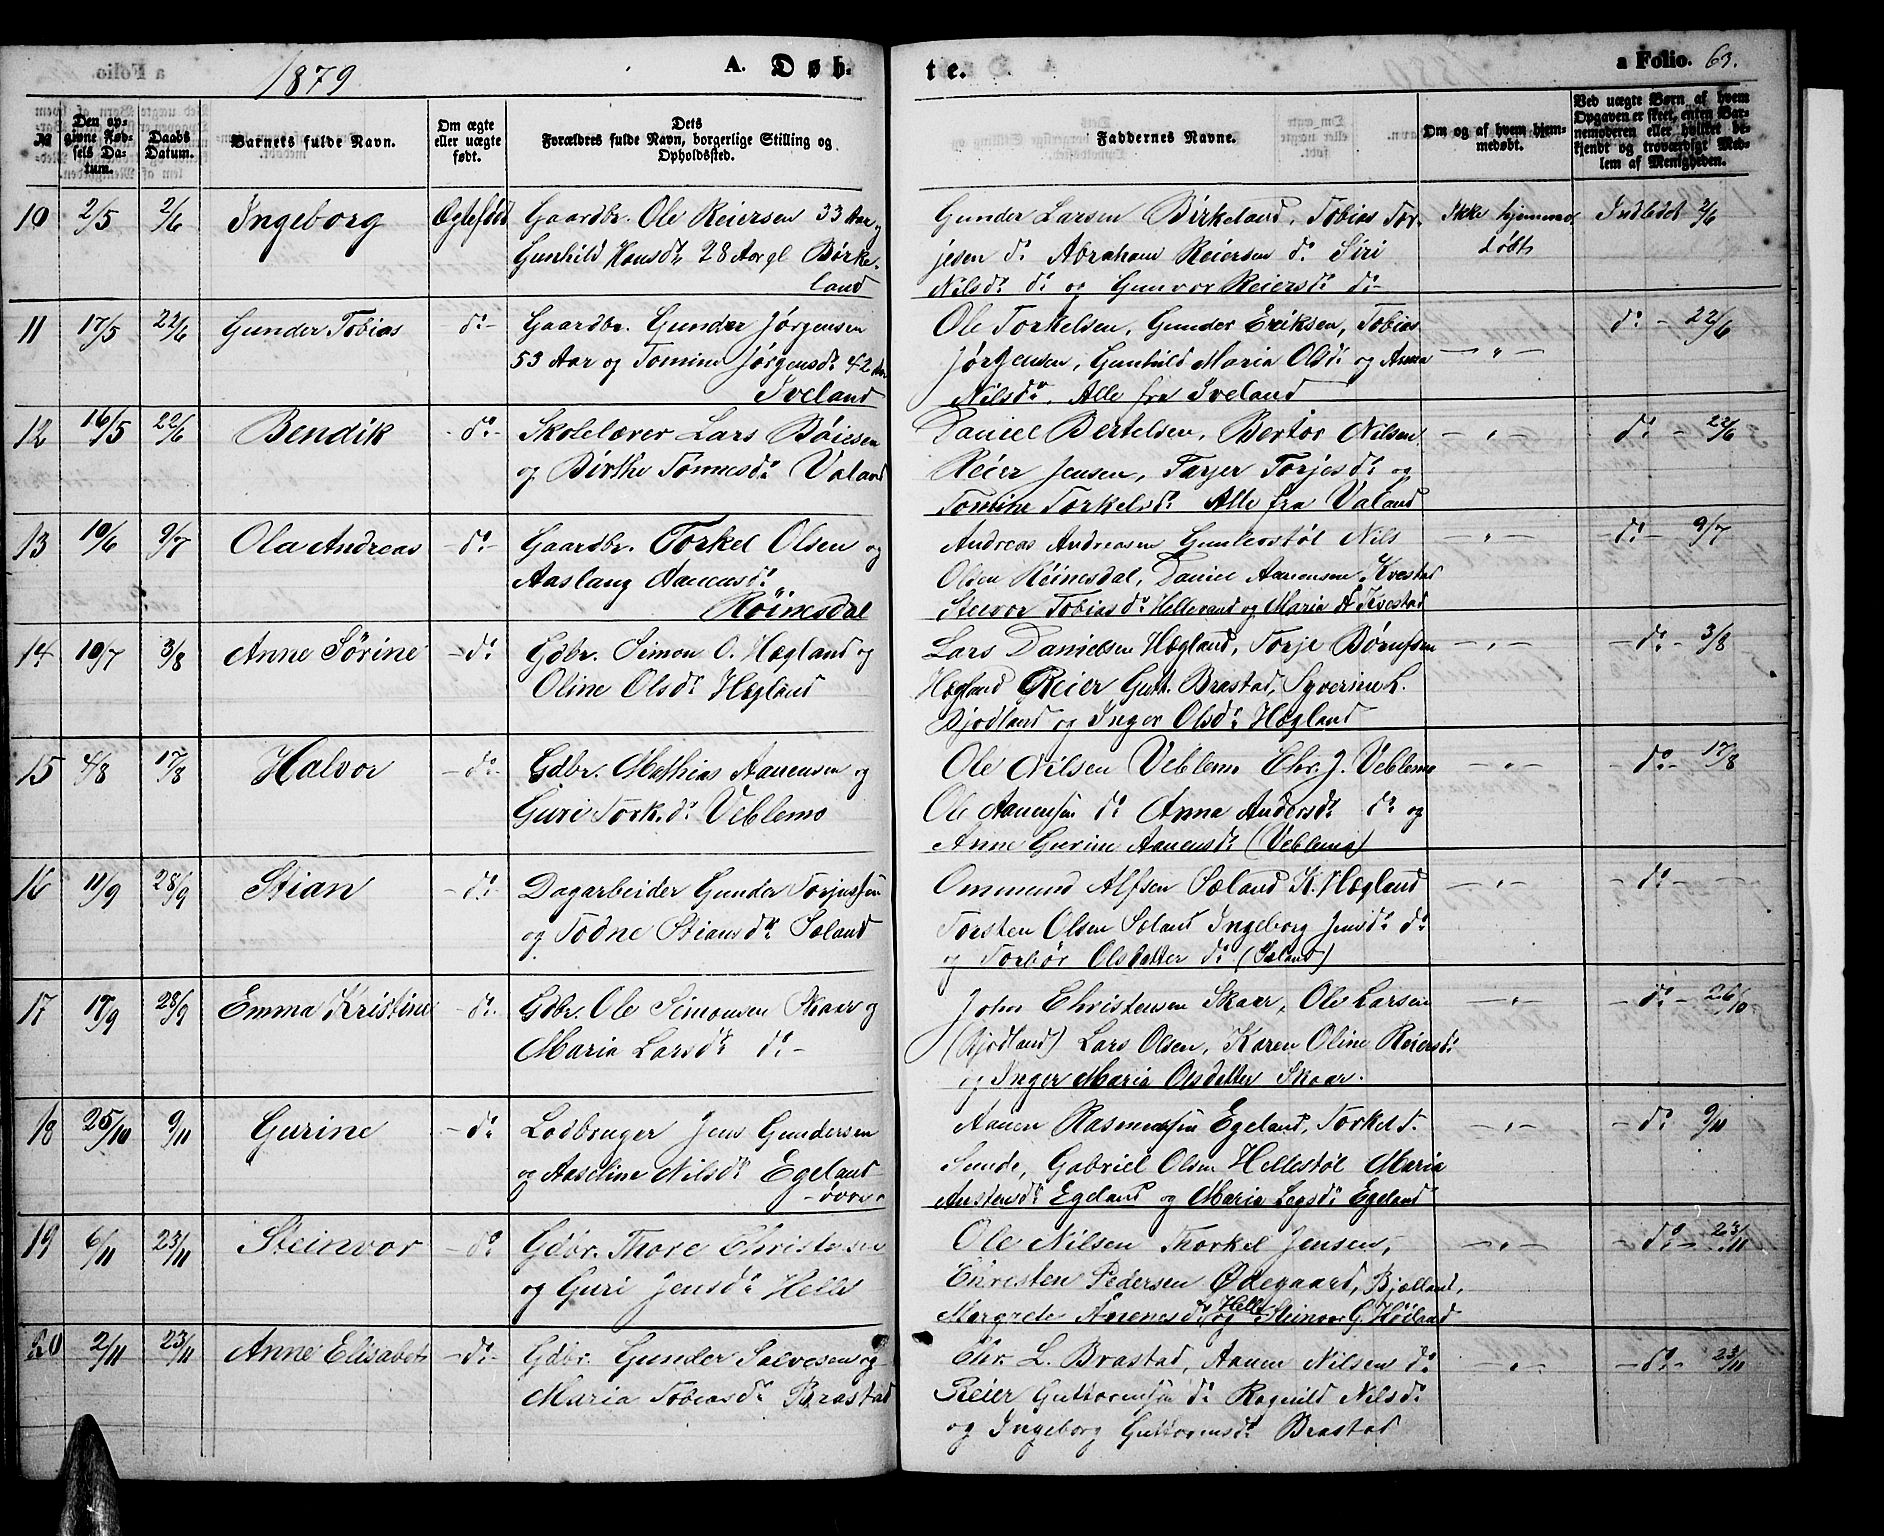 1879
A. Døb-
te.
a Folio. 63.
№
Den op-
givne Fød-
sels Da-
tum.
Daabs
Datum.
Barnets fulde Navn.
Om ægte
eller uægte
født.
Dets
Forældres fulde Navn, borgerlige Stilling og
Opholdssted.
Faddernes Navne.
Om og af hvem hjem-
medøbt.
Ved uægte Børn af hvem
Opgaven er skeet, enten Bar-
nemoderen eller hvilket be-
kjendt og troværdigt Med-
lem af Menigheden.
10 2/5 2/6 Ingeborg Ægtefødt Gaardbr. Ole Reiersen 33 Aar og
Gunhild Hansdr 28 Aar gl Birke-
land
Gunder Larsen Birkeland, Tobias Tor-
jesen do Abraham Reiersen do Siri
Nilsdr do og Gunvor Reiersdr do
Ikke hjemme-
døbt
Indledet 2/6
11 17/5 22/6 Gunder Tobias -do- Gaardbr. Gunder Jørgensen
53 Aar og Tomine Jørgensdr 42 Aar
Iveland
Ole Torkelsen, Gunder Eriksen, Tobias
Jørgensen, Gunhild Maria Olsdr og Anna
Nilsdr, Alle fra Iveland
— " —
do - 22/6
12 16/5 22/6 Bendik -do- Skolelærer Lars Bøiesen
og Birthe Tomesdr Valand
Daniel Bertelsen, Bertor Nilsen
Reier Jensen, Tarjer Torjesdr og
Tomine Torkelsdr Alle fra Valand
— " —
do - 22/6
13 10/6 9/7 Ola Andreas -do- Gaardbr. Torkel Olsen og
Aaslaug Aanensdr
Røinesdal
Andreas Andreasen Nils
Olsen Røinesdal, Daniel Aanensen Kvestad
Tobiasdr Helleland og Maria A Kvestad
— " —
do - 9/7
14 10/7 3/8 Anne Sørine -do Gdbr. Simon O. Hægland og
Oline Olsdr Hægland
Lars Danielsen Hægland, Torje Børufsen
Hægland Reier Gutt. Brastad, Syverine L.
Bjodland og Inger Olsdr Hægland
— " —
do - 3/8
15 4/8 17/8 Halvor -do- Gdbr. Mathias Aanensen og
Guri Tork.dr Veblemo
Ole Nilsen Veblemo Chr. J. Veblemo
Ole Aanensen do Anna Andersdr do og
Anne Gurine Aanensdr (Veblemo)
— " —
do - 17/8
16 11/9 28/9 Stian -do- Dagarbeider Gunder Torjussen
og Todne Stiansdr Sæland
Ommund Alfsen Sæland K. Hægland
Torsten Olsen Sæland Ingeborg Jensdr do
og Torbør Olsdatter do (Sæland)
— " —
- do -
17 17/9 28/9 Emma Kristine -do- Gdbr. Ole Simonsen Skaar og
Maria Larsdr do-
John Christensen Skaar, Ole Larsen
(Bjodland) Lars Olsen, Karen Oline Reiersdr
og Inger Maria Olsdatter Skaar.
— " —
- do - 26/10
18 25/10 9/11 Gurine -do Lodbruger Jens Gundersen
og Aaseline Nilsdr Egeland
-øvre-
Aanen Rasmussen Egeland, Torkel T.
Sunde, Gabriel Olsen Hellestøl Maria
Austensdr Egeland og Maria Legsdr Egeland
— " —
- do 9/11
19 6/11 23/11 Steinvor -do Gdbr. Thore Christensen
og Guri Jensdr Helle
Ole Nilsen Thorkel Jensen,
Christen Pedersen Ødegaard, Bjelland,
Margrete Anensdr Helle og Steinvor G. Høiland
— " —
- do - 23/11
20 2/11 23/11 Anne Elisabet -do- Gdbr. Gunder Salvesen og
Maria Tobiasdr Brastad
Chr. L. Brastad, Aanen Nilsen do
Reier Guttormsen do Ragnild Nilsdr
og Ingeborg Guttormsdr Brastad
— " —
- do - 23/11